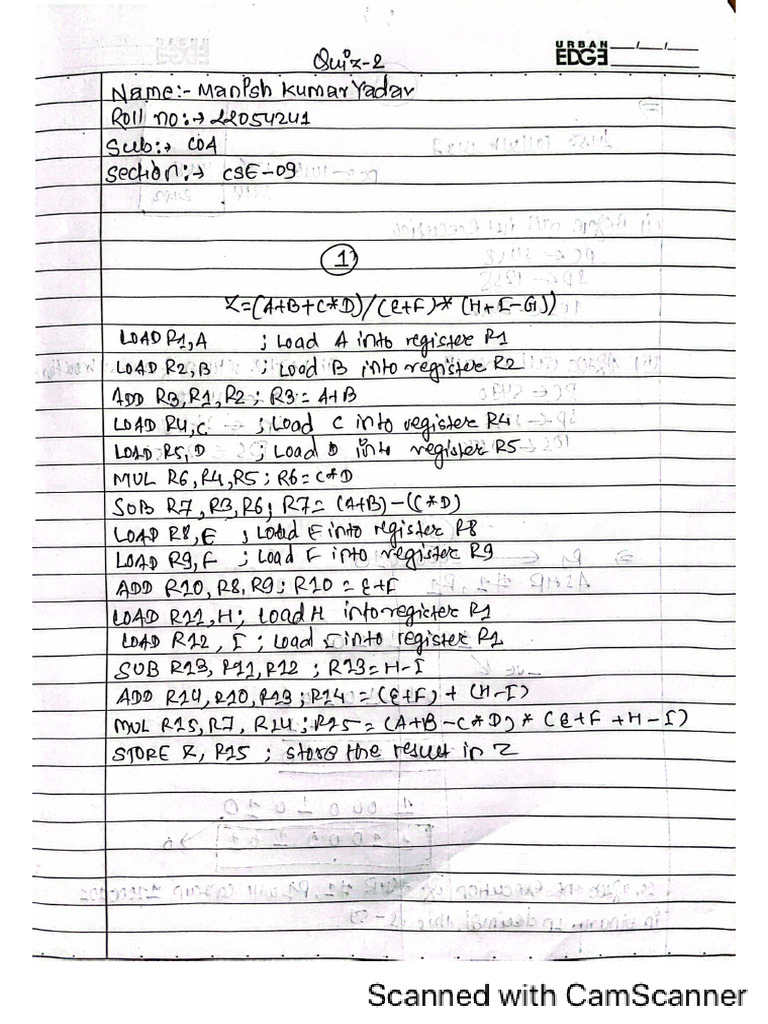 Quiz-2
URBAN EDGE
Name:- Manish Kumar Yadav
Roll no:→ 22054241
Sub:→ COA
Section:→ CSE-09
1)
Z=(A+B+C*D)/(E+F)*(H+I-G))
LOAD R1,A ; Load A into register R1
LOAD R2,B ; Load B into register R2
ADD R3,R1,R2; R3= A+B
LOAD R4,C ; Load C into register R4
LOAD R5,D ; Load D into register R5
MUL R6,R4,R5; R6=C*D
SUB R7,R3,R6; R7= (A+B)-(C*D)
LOAD R8,E ; Load E into register R8
LOAD R9,F ; Load F into register R9
ADD R10,R8,R9; R10 = E+F
LOAD R11,H; Load H into register R1
LOAD R12, I ; Load I into register R1
SUB R13, R11,R12 ; R13=H-I
ADD R14,R10,R13;R14 =(E+F) + (H-I)
MUL R15,R7, R14;R15=(A+B-C*D)*(E+F+H-I)
STORE Z, R15 ; store the result in Z
Scanned with CamScanner